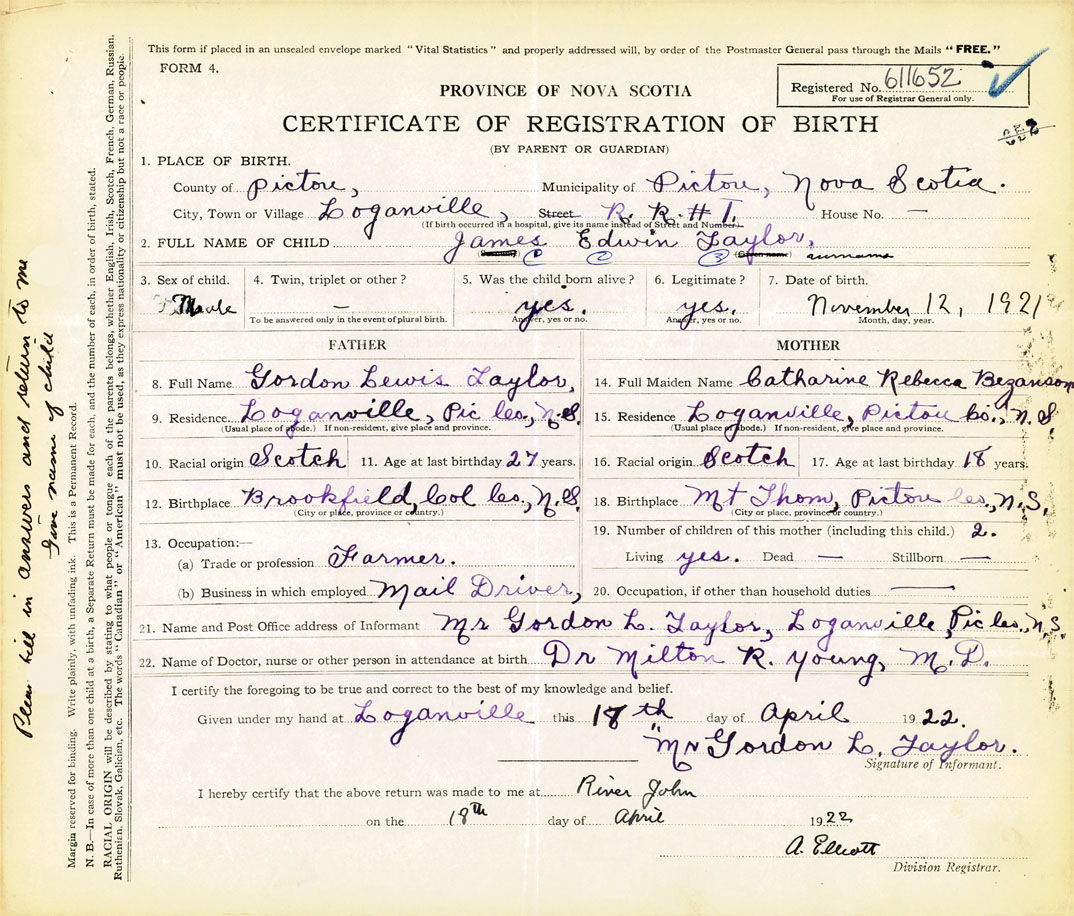 This form if placed in an unsealed envelope marked "Vital Statistics" and properly addressed will, by order of the Postmaster General pass through the Mails "FREE."
FORM 4.
Registered No. 611652
For use of Registrar General only.
PROVINCE OF NOVA SCOTIA
CERTIFICATE OF REGISTRATION OF BIRTH
(BY PARENT OR GUARDIAN)
1. PLACE OF BIRTH.
County of Pictou, Municipality of Pictou, Nova Scotia.
City, Town or Village Loganville, Street R. R. # 1. House No. —
(If birth occurred in a hospital, give its name instead of Street and Number)
2. FULL NAME OF CHILD James Edwin Taylor,
(Surname) 1 2 3 (Given name) surname
3. Sex of child. 4. Twin, triplet or other? 5. Was the child born alive? 6. Legitimate? 7. Date of birth.
Male — yes. yes. November 12, 1921
To be answered only in the event of plural birth. Answer, yes or no. Answer, yes or no. Month, day, year.
FATHER
8. Full Name Gordon Lewis Taylor,
9. Residence Loganville, Pic Co., N.S.
(Usual place of abode.) If non-resident, give place and province.
10. Racial origin Scotch 11. Age at last birthday 27 years.
12. Birthplace Brookfield, Col Co., N.S.
(City or place, province or country.)
13. Occupation:—
(a) Trade or profession Farmer.
(b) Business in which employed Mail Driver,
MOTHER
14. Full Maiden Name Catharine Rebecca Bezanson
15. Residence Loganville, Pictou Co., N.S.
(Usual place of abode.) If non-resident, give place and province.
16. Racial origin Scotch 17. Age at last birthday 18 years.
18. Birthplace Mt Thom, Pictou Co., N.S.
(City or place, province or country.)
19. Number of children of this mother (including this child.) 2.
Living yes. Dead — Stillborn —
20. Occupation, if other than household duties —
21. Name and Post Office address of Informant Mr Gordon L. Taylor, Loganville, Pic Co., N.S.
22. Name of Doctor, nurse or other person in attendance at birth Dr Milton R. Young, M.D.
I certify the foregoing to be true and correct to the best of my knowledge and belief.
Given under my hand at Loganville this 18th day of April 1922.
"Mr Gordon L. Taylor.
Signature of Informant.
I hereby certify that the above return was made to me at River John
on the 18th day of April 1922
A. Elliott
Division Registrar.
Please fill in answers and return to me
Give name of child
Margin reserved for binding. Write plainly, with unfading ink. This is a Permanent Record.
N. B.—In case of more than one child at a birth, a Separate Return must be made for each, and the number of each, in order of birth, stated.
RACIAL ORIGIN will be described by stating to what people or tongue each of the parents belongs, whether English, Irish, Scotch, French, German, Russian,
Ruthenian, Slovak, Galician, etc. The words "Canadian" or "American" must not be used, as they express nationality or citizenship but not a race or people.